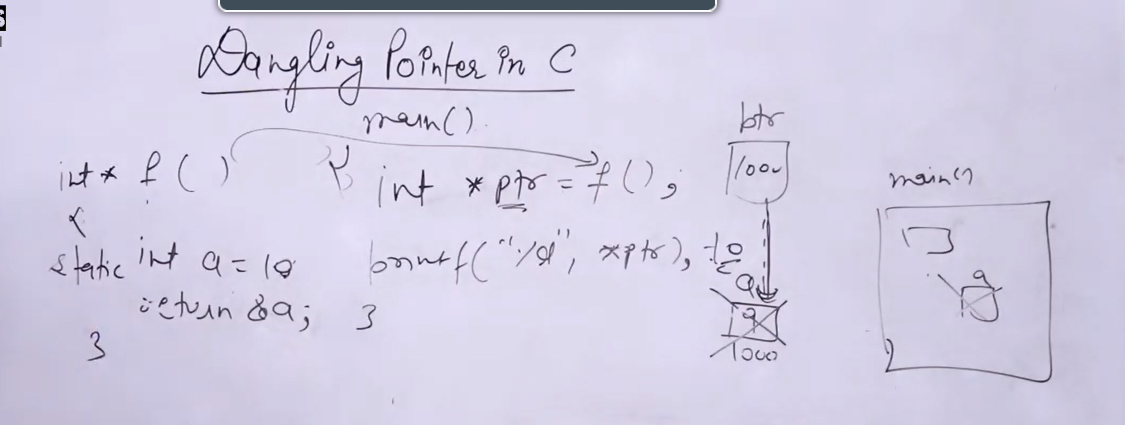 Dangling Pointer in C
main()
int * f ( )
{
static int a = 10
return &a;
}
{ int *ptr = f();
printf("%d", *ptr); 10
}
ptr
1000
a
9
1000
main()
a